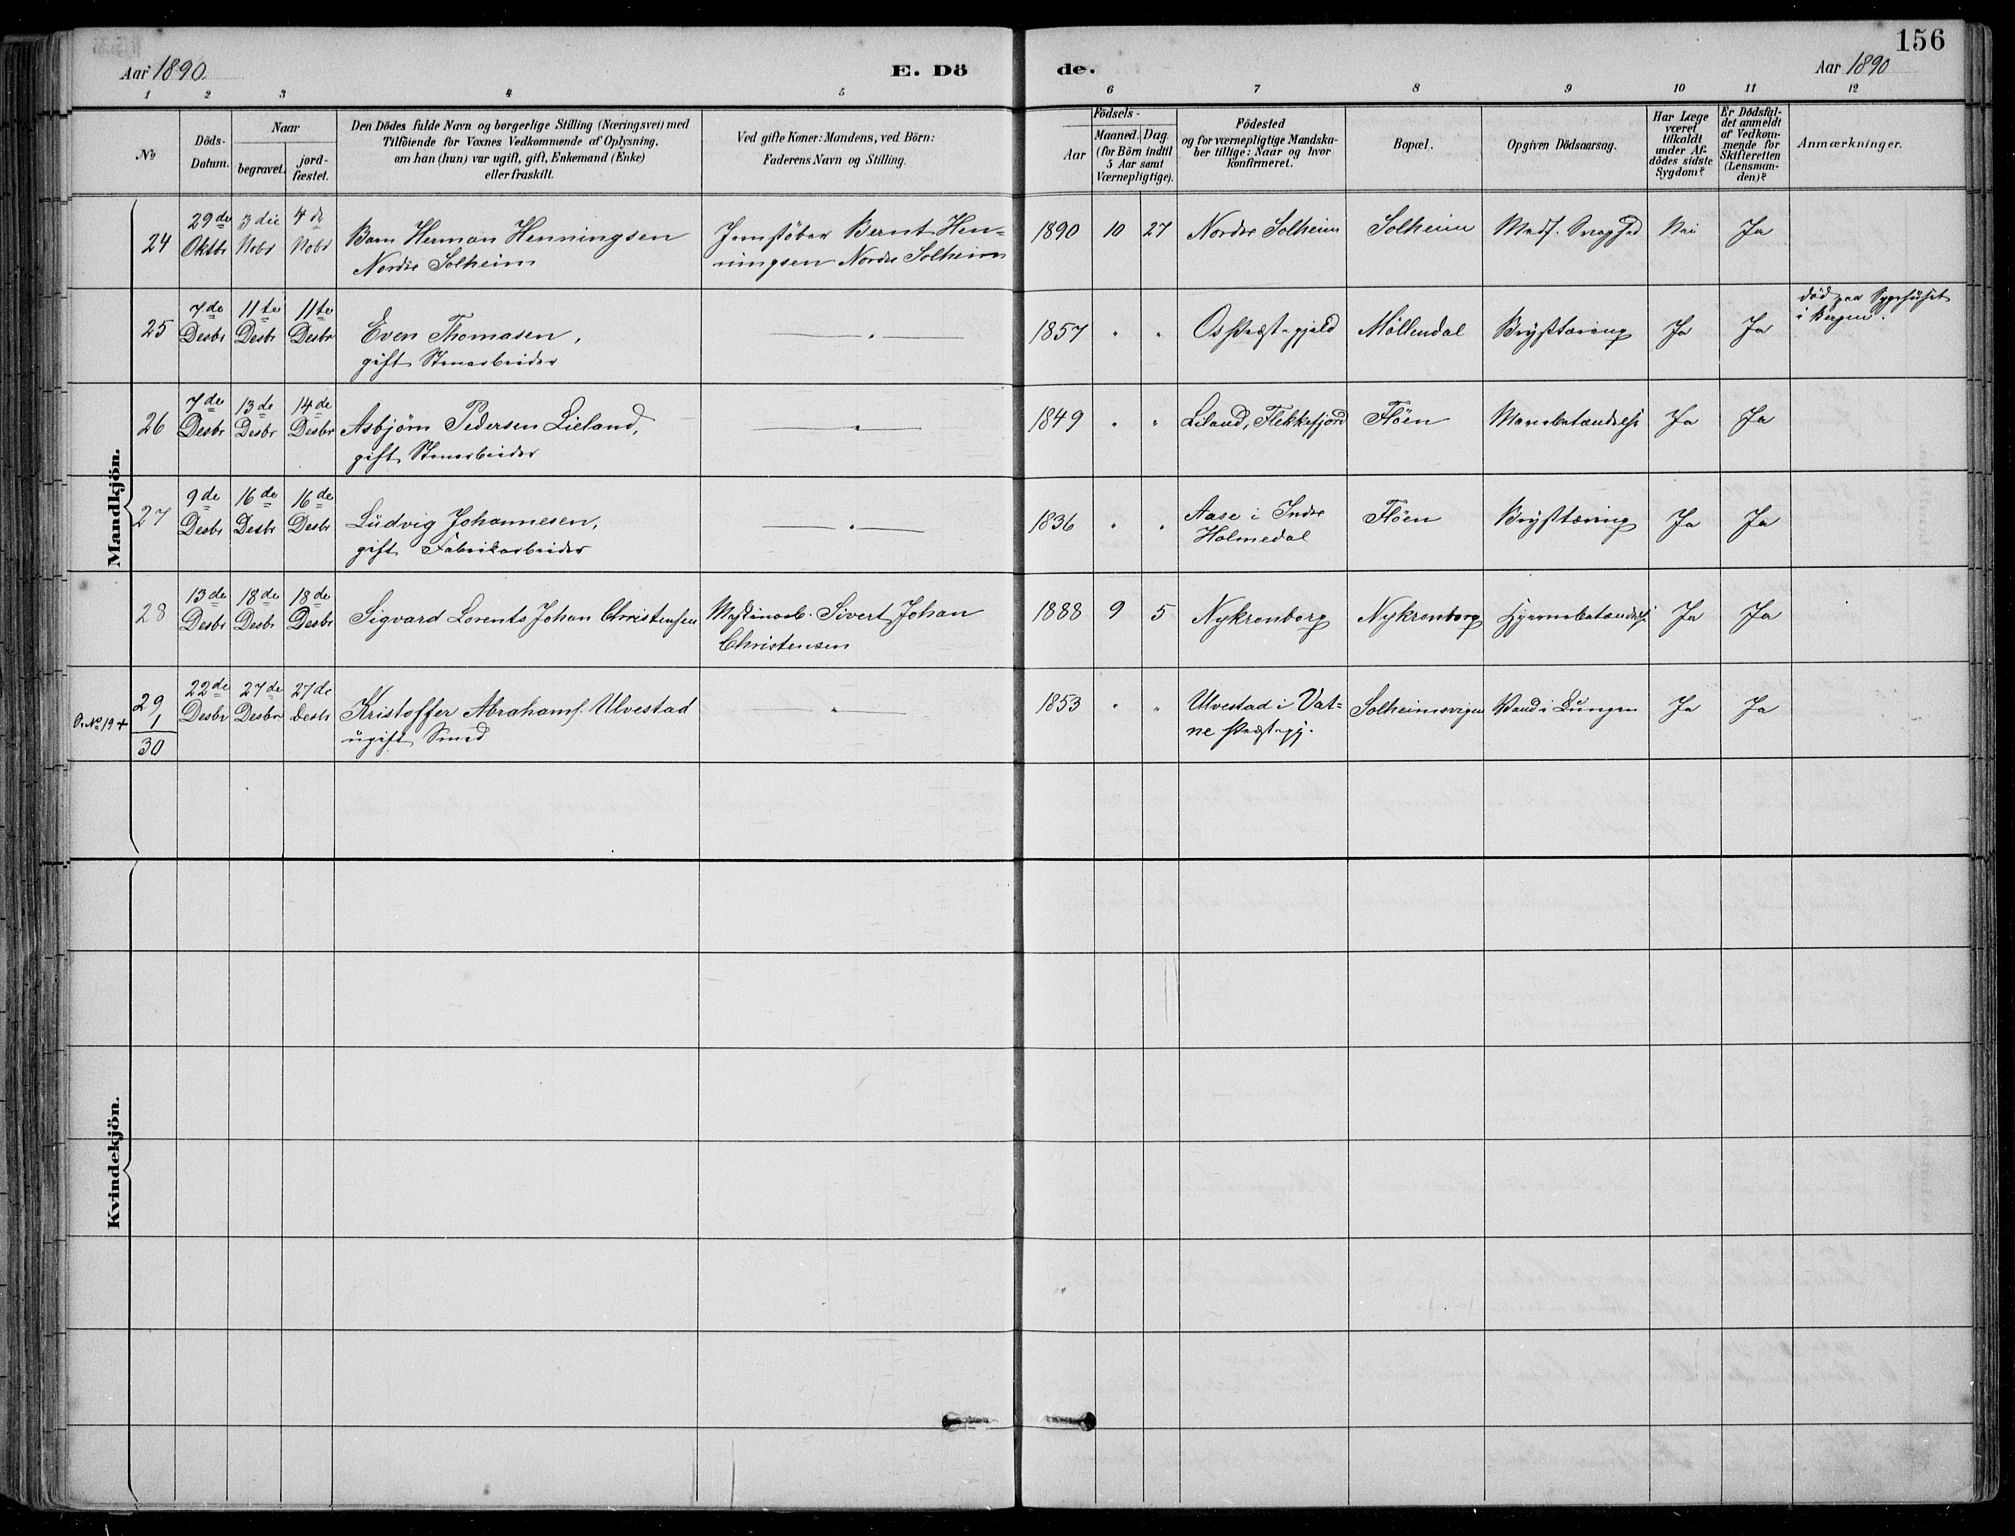 156
Aar 1890.
E. Dö
de.
Aar 1890
1 2 3 4 5 6 7 8 9 10 11 12
No
Döds-
Datum.
Naar
begravet.
jord-
fæstet.
Den Dödes fulde Navn og borgerlige Stilling (Næringsvei) med
Tilföiende for Voxnes Vedkommende af Oplysning,
om han (hun) var ugift, gift, Enkemand (Enke)
eller fraskilt.
Ved gifte Koner: Mandens, ved Börn:
Faderens Navn og Stilling.
Födsels-
Aar
Maaned. Dag.
(for Börn indtil
5 Aar samt
Værnepligtige).
Födested
og for værnepligtige Mandska-
ber tillige: Naar og hvor
konfirmeret.
Bopæl.
Opgiven Dödsaarsag.
Har Læge
været
tilkaldt
under Af-
dödes sidste
Sygdom?
Er Dödsfal-
det anmeldt
af Vedkom-
mende for
Skifteretten
(Lensman-
den)?
Anmærkninger.
Mandkjön.
24
29de
Oktbr
3die
Nobr
4de
Nobr
Barn Herman Henningsen
Nordre Solheim
Jernstöber Bernt Hen=
ningsen Nordre Solheim
1890 10 27 Nordre Solheim Solheim Medf. Svaghed Nei Ja
25
7de
Desbr
11te
Desbr
11te
Desbr
Even Thomasen,
gift, Stenarbeider
— " —
1857 " " Os Præstegjeld Möllendal Brysttæring Ja Ja
död paa Sygehuset
i Bergen.
26
7de
Desbr
13de
Desbr
14de
Desbr
Asbjörn Pedersen Lieland,
gift, Stenarbeider
— " —
1849 " " Liland, Flekkefjord Flöen Mavebetændelse Ja Ja
27
9de
Desbr
16de
Desbr
16de
Desbr
Ludvig Johannesen,
gift Fabrikarbeider
— " —
1836 " " Aase i Indre
Holmedal
Flöen Brysttæring Ja Ja
28
13de
Desbr
18de
Desbr
18de
Desbr
Sigvard Lorents Johan Christensen
Maskinarb. Sivert Johan
Christensen
1888 9 5 Nykronborg Nykronborg Hjernebetændelse Ja Ja
O. No 19 +
29
1
30
22de
Desbr
27de
Desbr
27de
Desbr
Kristoffer Abrahams. Ulvestad
ugift Smed
— " —
1853 " " Ulvestad i Vat=
ne Præstegj.
Solheimsvigen Vand i Lungen Ja Ja
Kvindekjön.